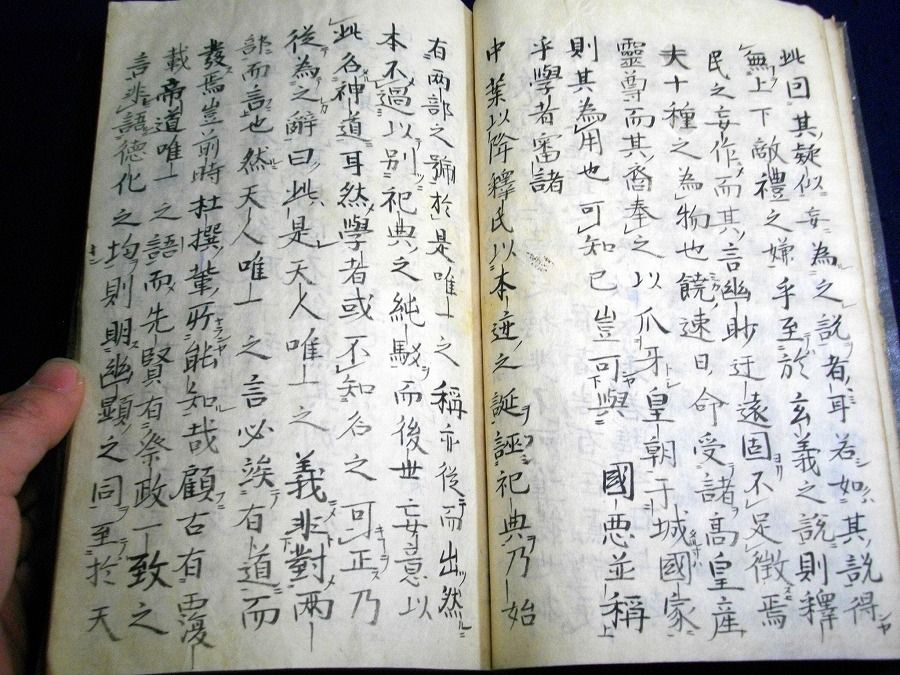 此回其疑似妄為之說者耳若如其說得
無上下敵禮之嫌乎至於玄義之說則釋
民之妄作而其言幽眇迂遠固不足徵焉
夫十種之為物也饒速日命受諸高皇產
靈尊而其裔奉之以爪牙皇朝于城國家
則其為用也可知已豈可與 國惡並稱
乎學者審諸
中葉以降釋氏以本迹之誕誣祀典乃始
有兩部之號於是唯一之稱亦從而出然
本不過以別祀典之純駁而後世妄意以
此名神道耳然學者或不知名之可正乃
從為之辭曰此是天人唯一之義非對兩
部而言也然天人唯一之言必竢有道而
發焉豈前時杜撰輩所能知哉顧古有覆
載帝道唯一之語而先賢有祭政一致之
言非語德化之均則明幽顯之同至於天